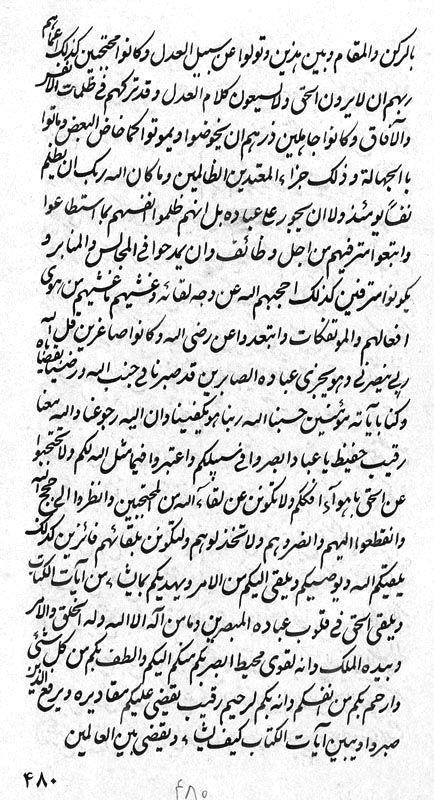 بالركن والمقام وبين هذين وتولوا عن سبيل العدل وكانوا محتجبين كذلك عماهم
ربهم ان لايرون الحق ولايسمعون كلام العدل وقد تركهم في ظلمات الانفس
والآفاق وكانوا جاهلين ذرهم ان يخوضوا ويموتوا كما خاض البعض وماتوا
باالجهالة وذلك جزاء المعتدين الظالمين وما كان الله ربك ان يظلم
نفسا يومئذ ولاان يجور على عباده بل انهم ظلموا انفسهم بما استطاعوا
واتبعوا مترفيهم من اجل وظائف وان يمدحوا في المجالس والمنابر و
يكونوا مترفين كذلك احجبهم الله عن وجه لقائه وغشيهم ماغشيهم من هوى
افعالهم والمؤتفكات وابتعدوا عن رضى الله وكانوا صاغرين قل الله
ربي ينصرني وهو يجزى عباده الصابرين قد صبرنا في جنب الله ورضينا بقضاياه
وكنا باياته مؤمنين حسبنا الله ربنا هو يكفينا وان اليه رجوعنا والله معنا
رقيب حفيظ ياعباد ابصروا في سبيلكم واعتبروا فيما مثل الله لكم ولاتحتجبوا
عن الحق باهواء افكلكم ولاتكونن عن لقاء الله من المحتجبين وانظروا الى حجج الله
وانقطعوا اليهم وانصروهم ولاتخذلوهم ولتكونن بلقائهم فائزين كذلك
يلقيكم الله ويوصيكم ويلقى اليكم من الامر ويهديكم بمايشاء من آيات الكتاب
ويلقى الحق في قلوب عباده المبصرين ومامن آله الاالله وله الخلق والامر
وبيده الملك وانه لقوى محيط ابصر بكم منكم اليكم والطف بكم من كل شئ
وارحم بكم من انفسكم وانه بكم لرحيم رقيب يقضى عليكم مقاديره ويرفع الذين
صبروا ويبين آيات الكتاب كيف يشاء ويقضى بين العالمين
۴۸۰
۴۸۰